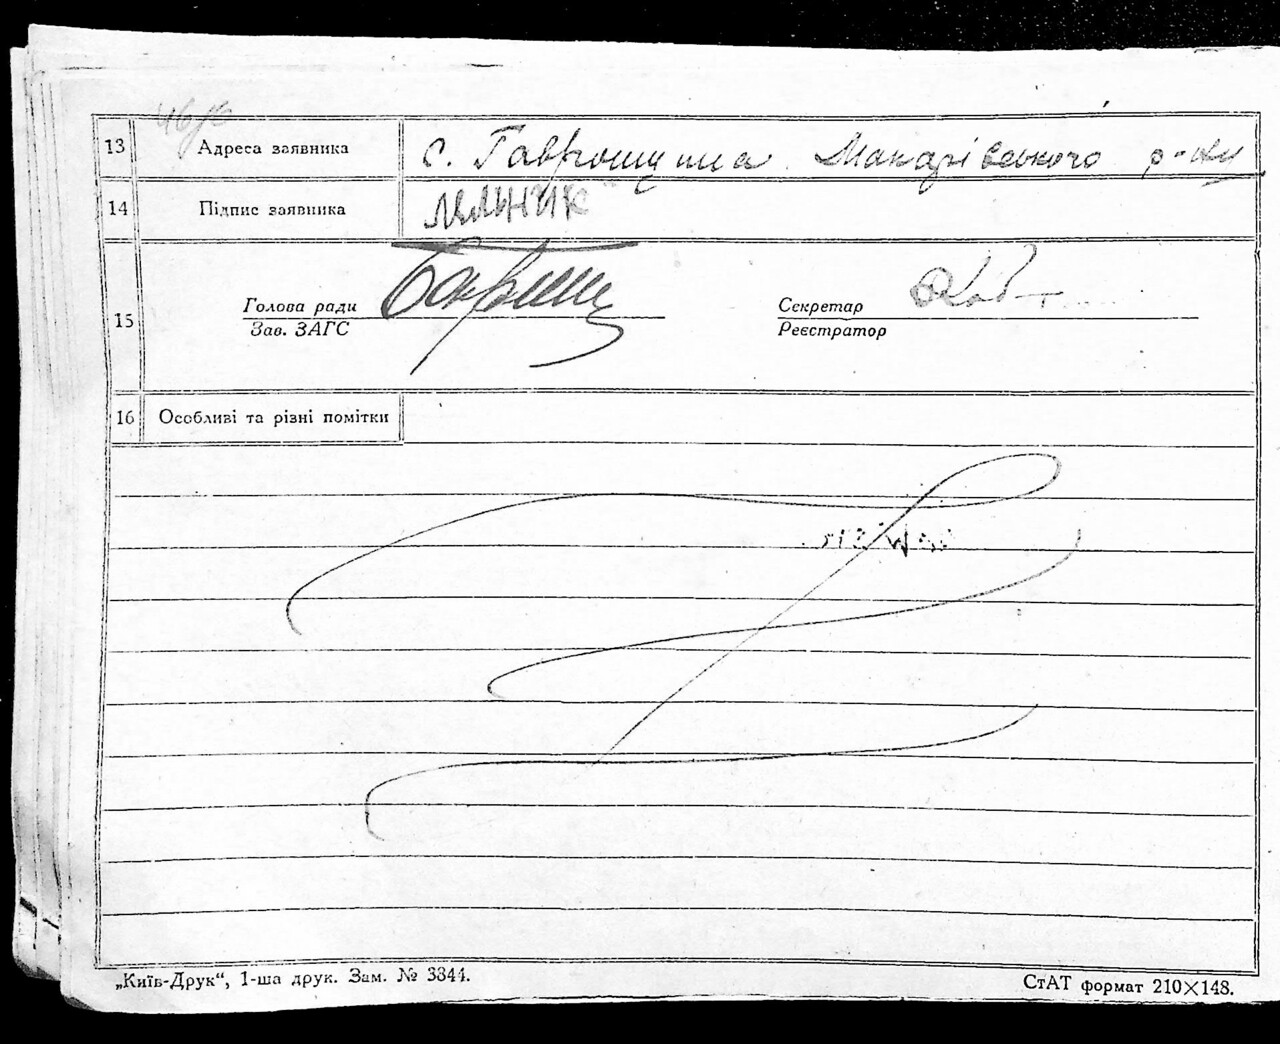 13 Адреса заявника с. Гавронщина Макарівського р-ну
14 Підпис заявника
15 Голова ради Секретар
Зав. ЗАГС Реєстратор
16 Особливі та різні помітки
„Київ-Друк“, 1-ша друк. Зам. № 3344. СтАТ формат 210×148.